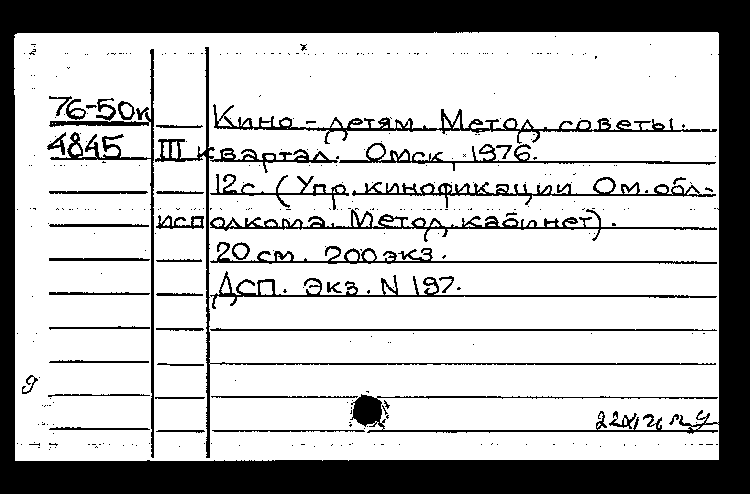 76-50к
4845
Кино - детям. Метод. советы.
III квартал. Омск, 1976.
12с. (Упр. кинофикации Ом. обл-
исполкома. Метод. кабинет).
20 см. 200 экз.
ДСП. Экз. N 197.